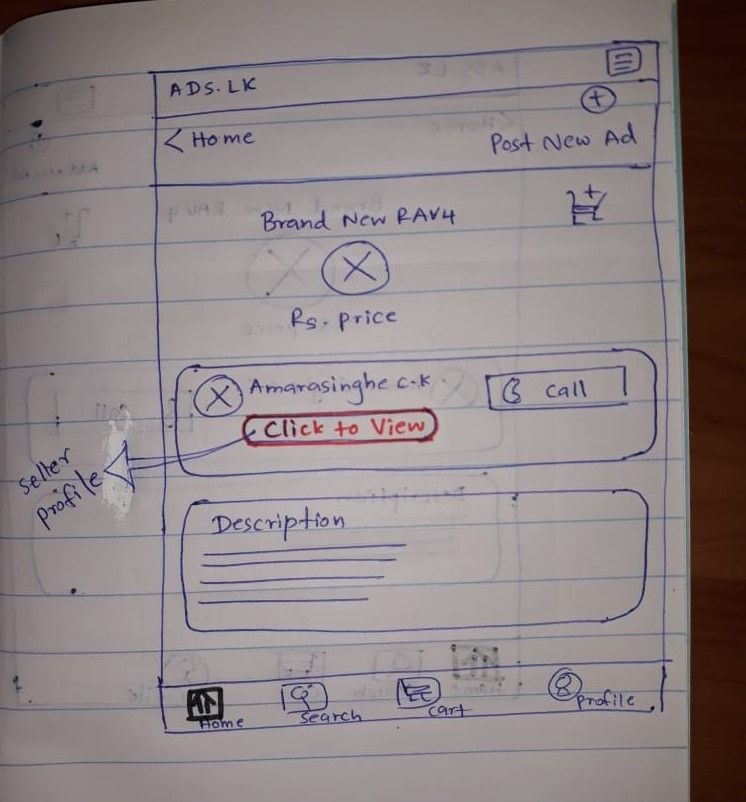 ADS.LK
< Home
Post New Ad
Brand New RAV4
Rs. price
Amarasinghe C.K.
Call
Click to View
Seller profile
Description
Home
Search
Cart
Profile